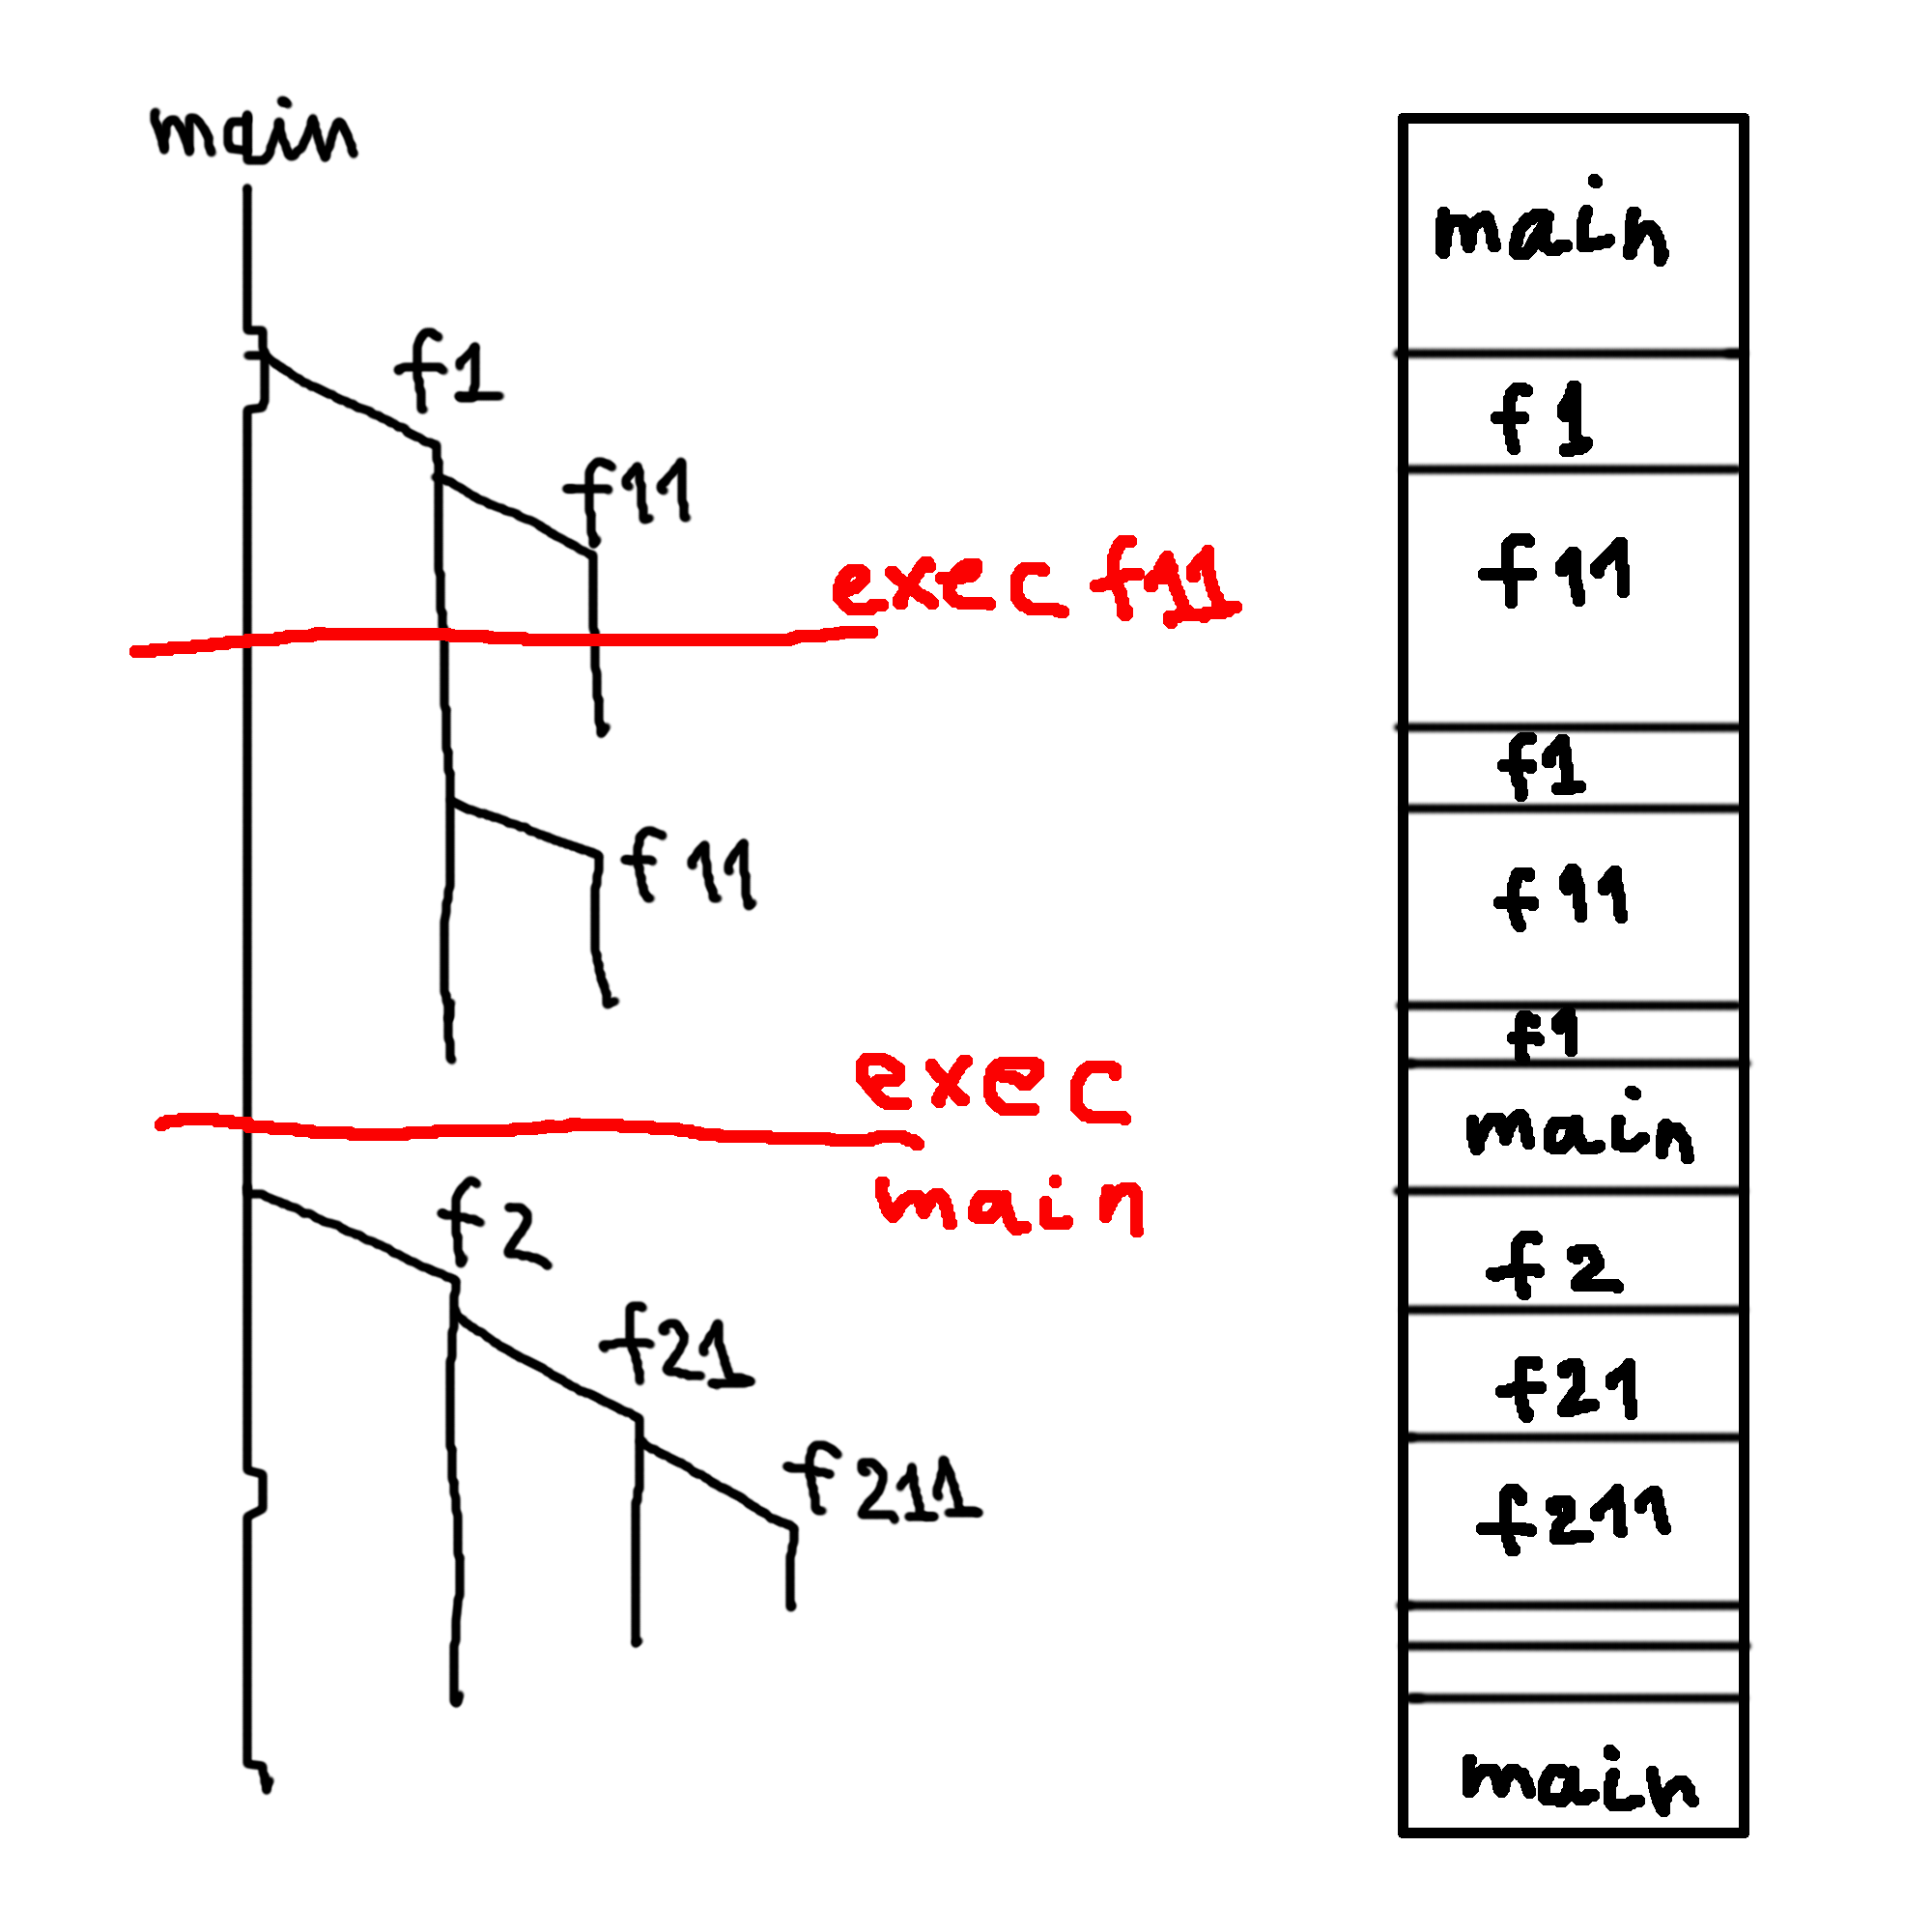 main
f1
f11
exec f11
f11
exec
main
f2
f21
f211
main
f1
f11
f1
f11
f1
main
f2
f21
f211
main